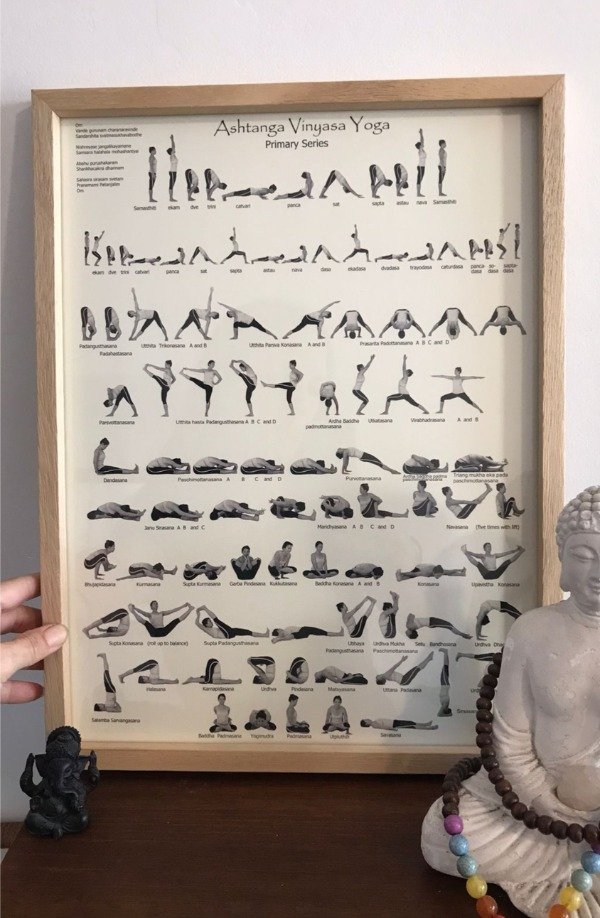 Ashtanga Vinyasa Yoga
Primary Series
Om
Vande gurunam charanaravinde
Sandarshita svatmasukhavabodhe
Nishreyase jangalikayamane
Samsara halahala mohashantyai
Abahu purushakaram
Shankhacakrsi dharinam
Sahasra sirasam svetam
Pranamami Patanjalim
Om
Samasthiti ekam dve trini catvari panca sat sapta astau nava Samasthiti
ekam dve trini catvari panca sat sapta astau nava dasa ekadasa dvadasa trayodasa caturdasa panca- so- sapta-
dasa dasa dasa
Padangusthasana Utthita Trikonasana A and B Utthita Parsva Konasana A and B Prasarita Padottanasana A B C and D
Padahastasana
Parsvottanasana Utthita hasta Padangusthasana A B C and D Ardha Baddha Utkatasana Virabhadrasana A and B
padmottanasana
Dandasana Paschimottanasana A B C and D Purvottanasana Triang mukha eka pada
paschimottanasana
Janu Sirasana A B and C Marichyasana A B C and D Navasana (five times with lift)
Bhujapidasana Kurmasana Supta Kurmasana Garba Pindasana Kukkutasana Baddha Konasana A and B Konasana Upavistha Konasana
Supta Konasana (roll up to balance) Supta Padangusthasana Ubhaya Urdhva Mukha Setu Bandhasana Urdhva
Padangusthasana Paschimottanasana
Halasana Karnapidasana Urdhva Pindasana Matsyasana Uttana Padasana
Salamba Sarvangasana
Baddha Padmasana Yogimudra Padmasana Utpluthih Savasana